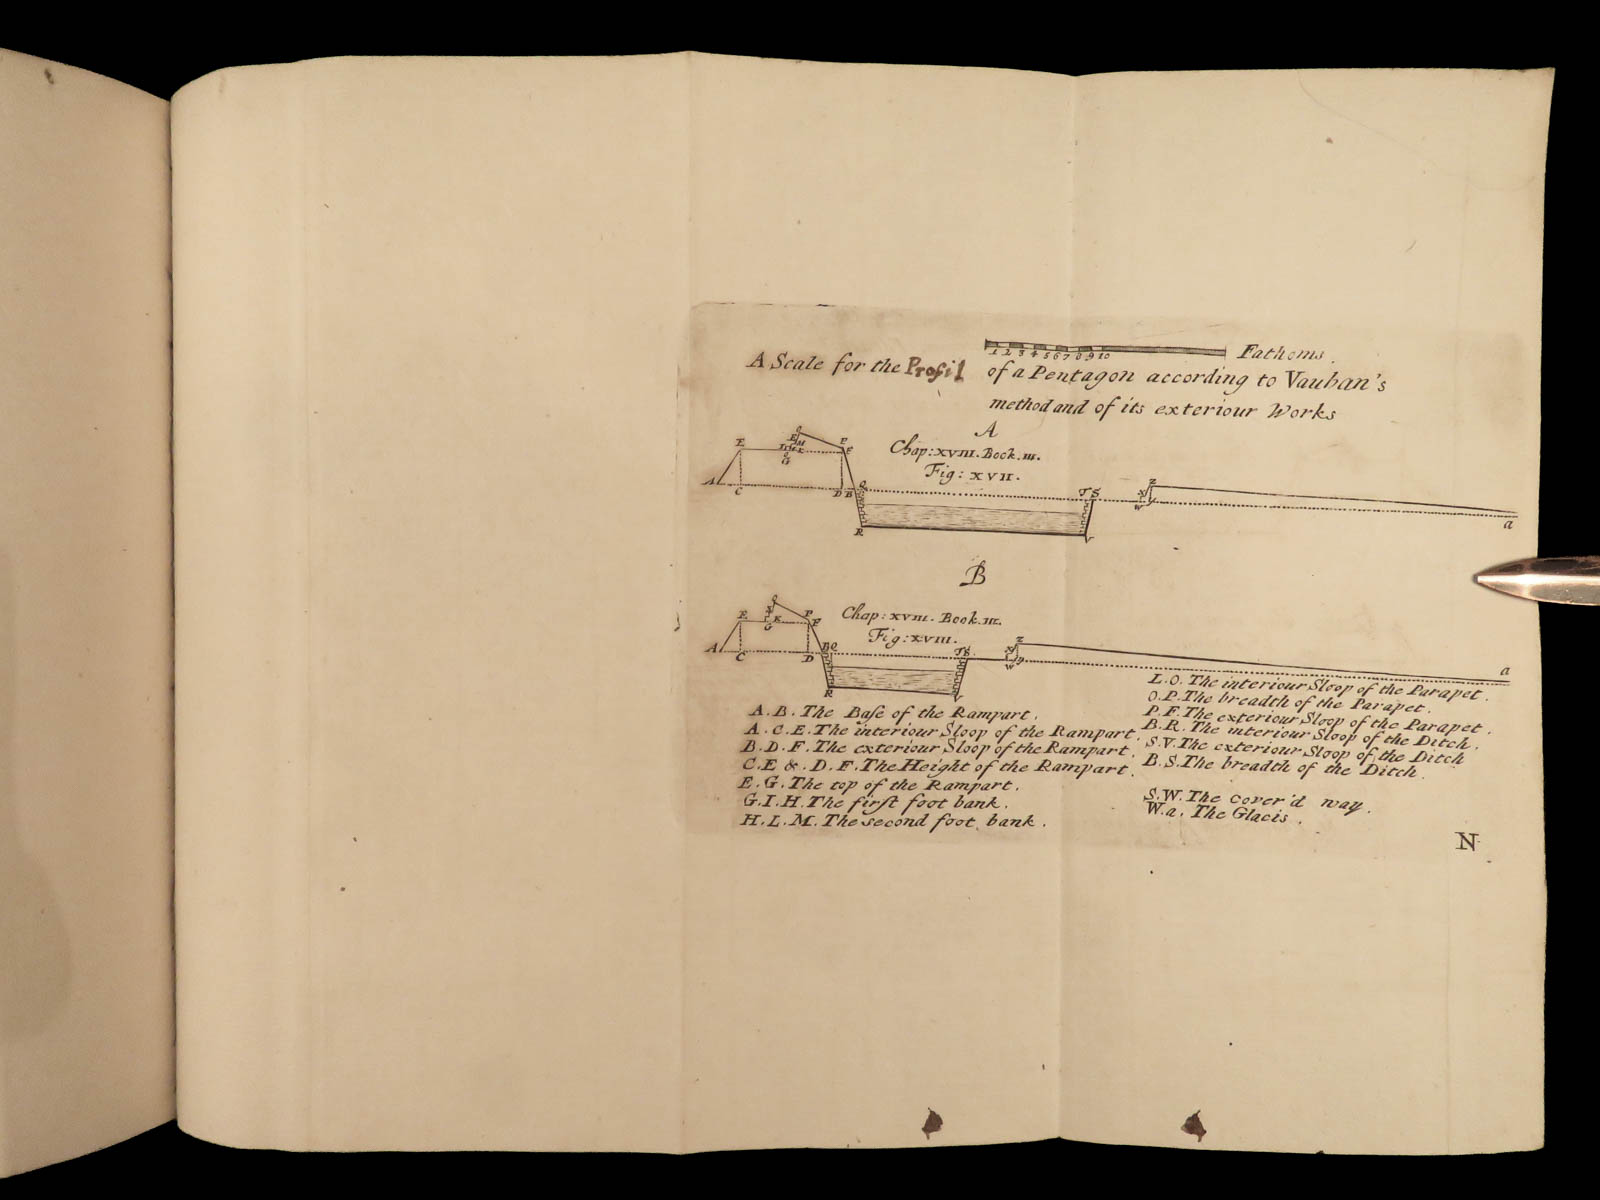 1 2 3 4 5 6 7 8 9 10 Fathoms.
A Scale for the Profil of a Pentagon according to Vauban's
method and of its exteriour Works
A
Chap: XVIII. Book. III.
Fig: XVII.
E
O
P
F
G
A
C
D B Q
T S
X
Z
W
a
R
V
B
Chap: XVIII. Book. III.
Fig: XVIII.
E
O
P
F
G K
A
C
D
B Q
T S
X
Z
W Y
a
R
V
A. B. The Baſe of the Rampart.
A. C. E. The interiour Sloop of the Rampart.
B. D. F. The exteriour Sloop of the Rampart.
C. E & . D. F. The Height of the Rampart.
E. G. The top of the Rampart.
G. I. H. The firſt foot bank.
H. L. M. The second foot bank.
L. O. The interiour Sloop of the Parapet.
O. P. The breadth of the Parapet.
P. F. The exteriour Sloop of the Parapet.
B. R. The interiour Sloop of the Ditch.
S. V. The exteriour Sloop of the Ditch
B. S. The breadth of the Ditch.
S. W. The cover'd way.
W. a. The Glacis.
N